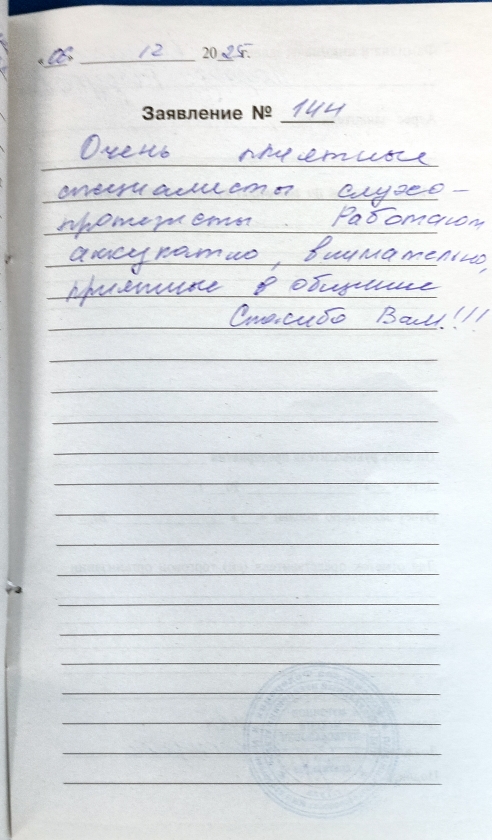 «06» 12 2025г.
Заявление № 144
Очень приятные
специалисты слухо-
протезисты. Работают
аккуратно, внимательно,
приятные в общение
Спасибо Вам!!!